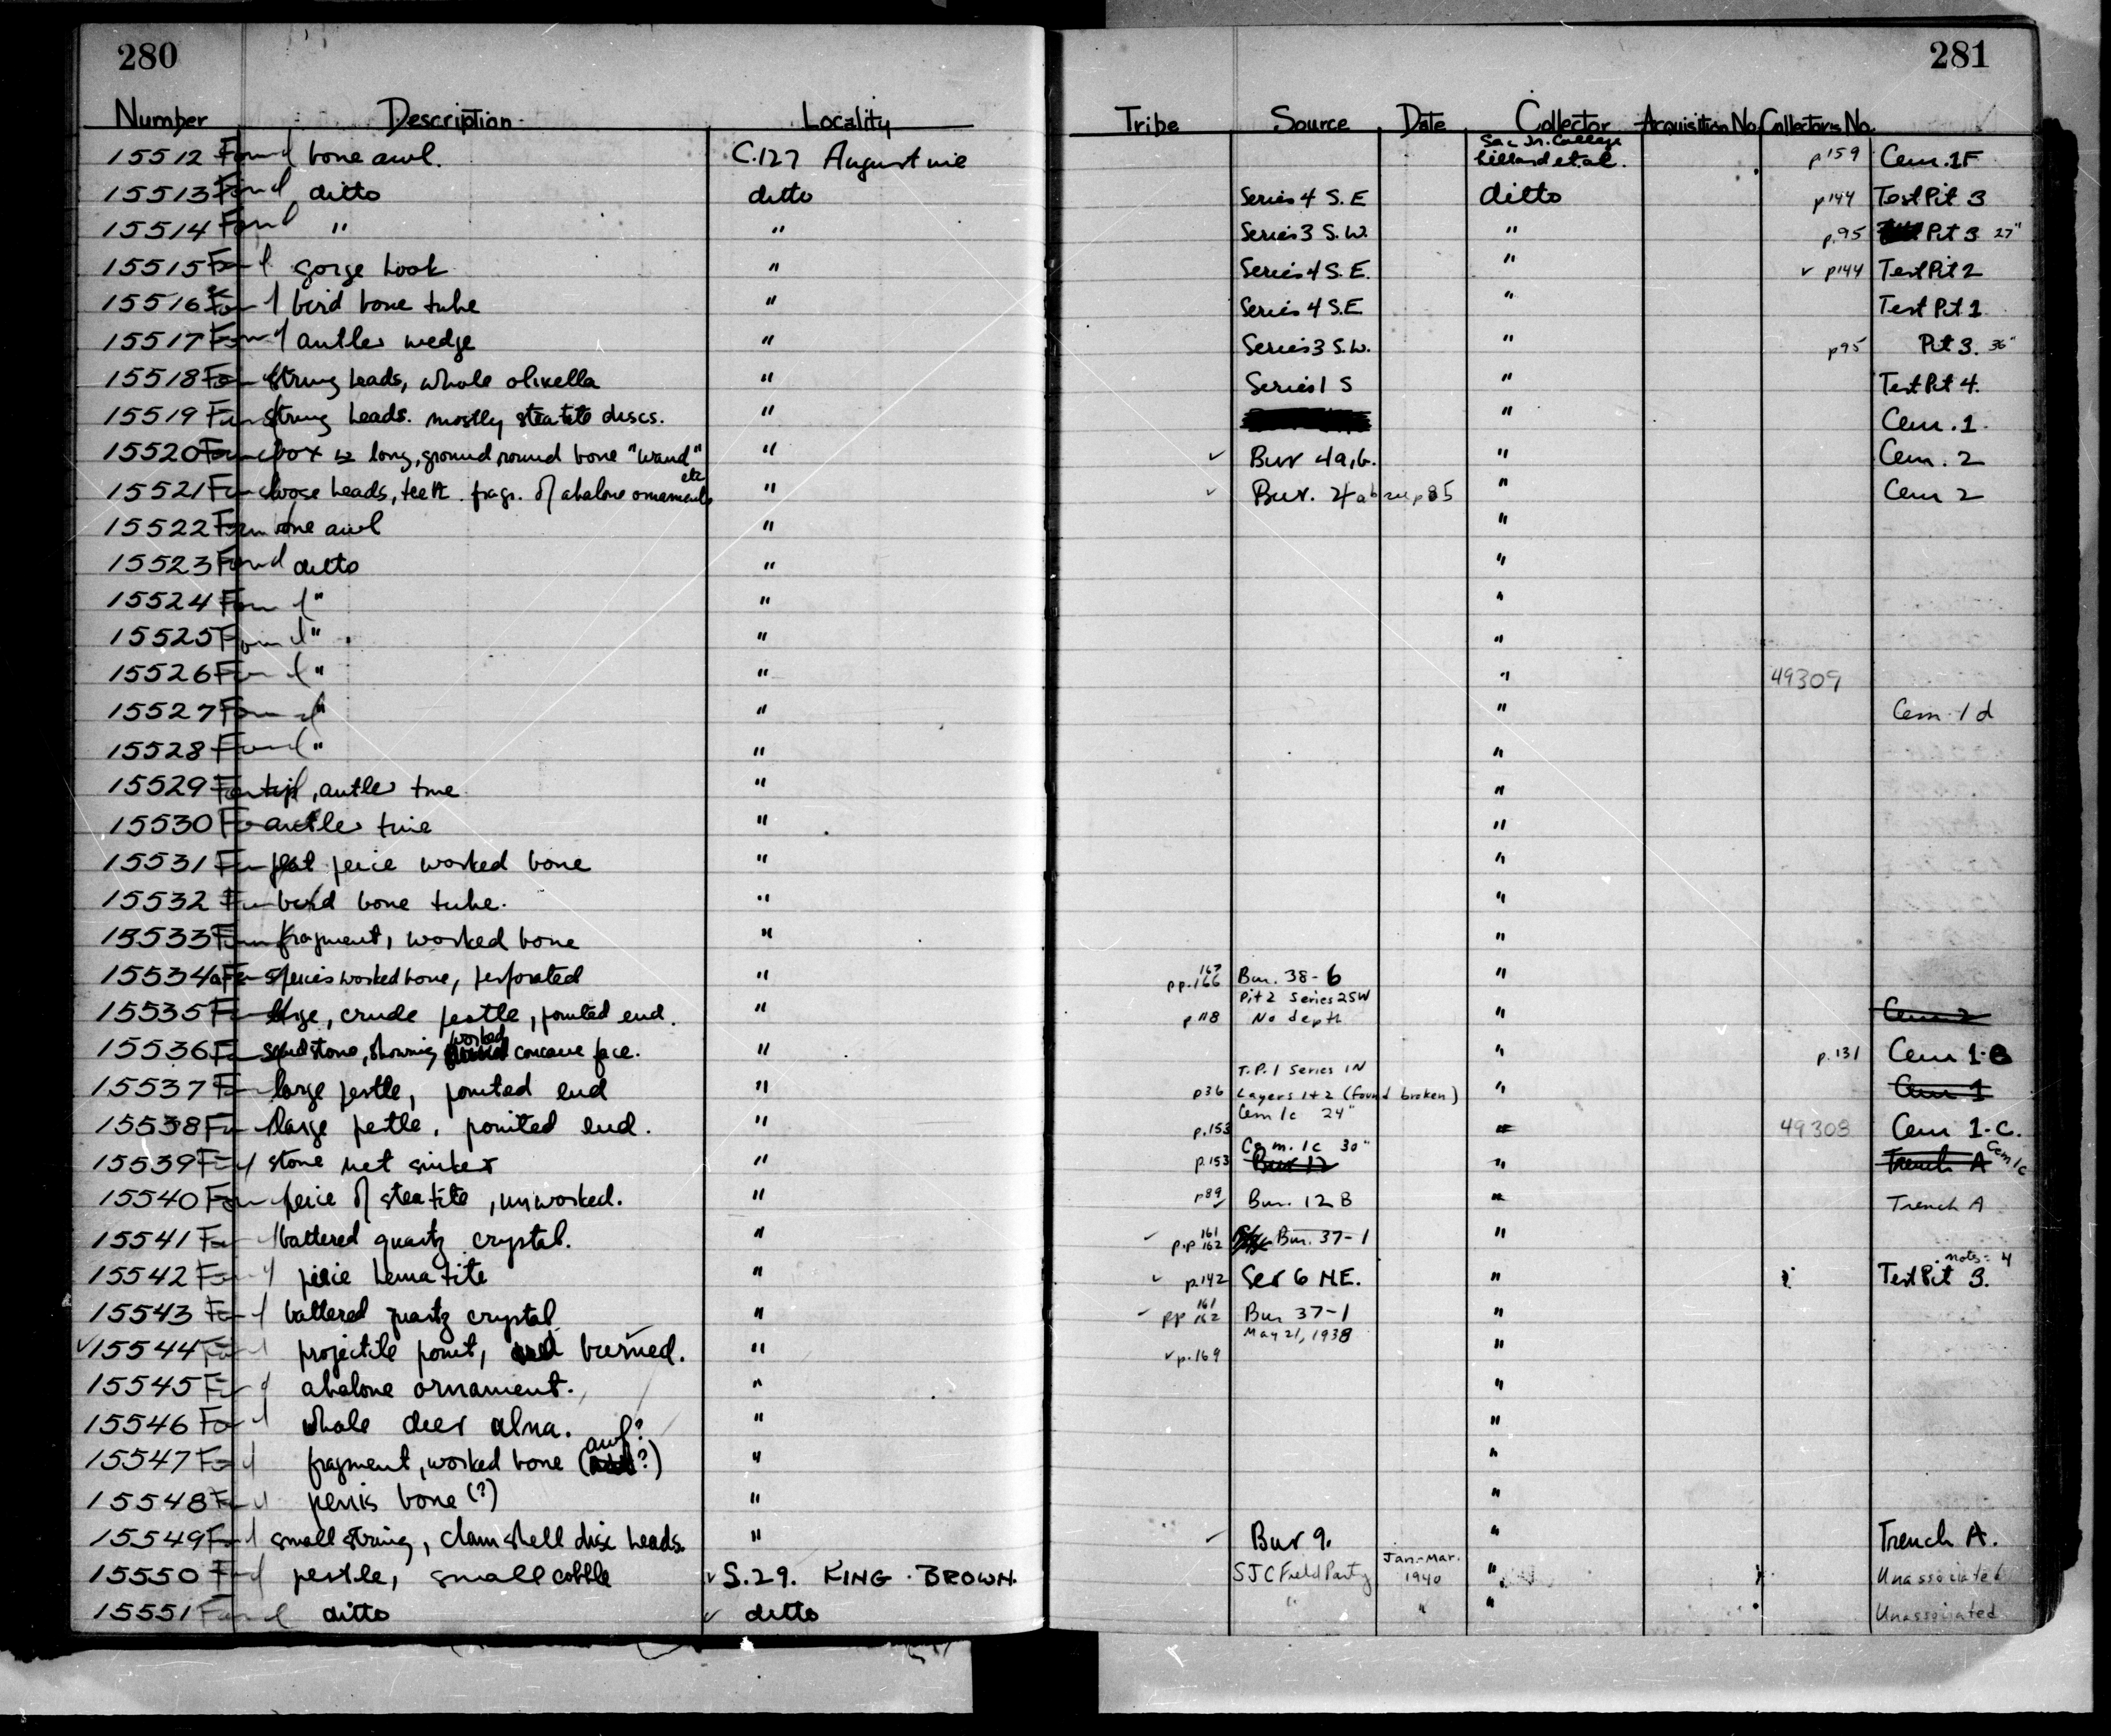 280
281
Number Description Locality Tribe Source Date Collector Acquisition No. Collectors No.
15512 Found bone awl. C.127 Augustine Sac Jr. College Lillard et al. p159 Cem. 1F
15513 Found ditto ditto Series 4 S.E ditto p144 Test Pit 3
15514 Found " " Series 3 S.W. " p.95 Pit 3 27"
15515 Found gorge hook " Series 4 S.E. " ✓ p144 Test Pit 2
15516 Found bird bone tube " Series 4 S.E " Test Pit 1
15517 Found antler wedge " Series 3 S.W. " p95 Pit 3. 36"
15518 Found string beads, whole olivella " Series 1 S " Test Pit 4.
15519 Found string beads. mostly steatite discs. " " Cem. 1.
15520 Found box long, ground, round bone "wand" " ✓ Bur 4a,b. " Cem. 2
15521 Found loose beads, teeth. frags. of abalone ornaments etc " ✓ Bur. 4ab p85 " Cem 2
15522 Found bone awl " "
15523 Found ditto " "
15524 Found " " "
15525 Found " " "
15526 Found " " " 49309
15527 Found " " " Cem. 1d
15528 Found " " "
15529 Found tip, antler tine " "
15530 Found antler tine " "
15531 Found flat peice worked bone " "
15532 Found bird bone tube. " "
15533 Found fragment, worked bone " "
15534a Found peices worked bone, perforated " pp. 166 167 Bur. 38-6 "
15535 Found large, crude pestle, pointed end. " p118 Pit 2 Series 2SW No depth " Cem 2
15536 Found sandstone, showing worked concave face. " " p.131 Cem 1-B
15537 Found large pestle, pointed end " p36 T.P. 1 Series 1N Layers 1+2 (found broken) " Cem 1
15538 Found large pestle, pointed end. " p.153 Cem 1c 24" " 49308 Cem 1-C.
15539 Found stone net sinker " p.153 Cem. 1c 30" Bur 12 " Trench A Cem 1c
15540 Found peice of steatite, unworked. " p89 Bur. 12B " Trench A
15541 Found battered quartz crystal. " p.p 161 162 Bur. 37-1 "
15542 Found peice hematite " ✓ p.142 Ser 6 N.E. " Test Pit 3. notes = 4
15543 Found battered quartz crystal " pp 161 162 Bur 37-1 "
✓15544 Found projectile point, burned. " ✓p.169 May 21, 1938 "
15545 Found abalone ornament. " "
15546 Found whole deer ulna. " "
15547 Found fragment, worked bone (awl? ?) " "
15548 Found penis bone (?) " "
15549 Found small string, clam shell disc beads. " Bur 9. " Trench A.
15550 Found pestle, small cobble ✓ S.29. KING · BROWN. SJC Field Party Jan-Mar. 1940 " Unassociated
15551 Found ditto ✓ ditto " " " Unassociated